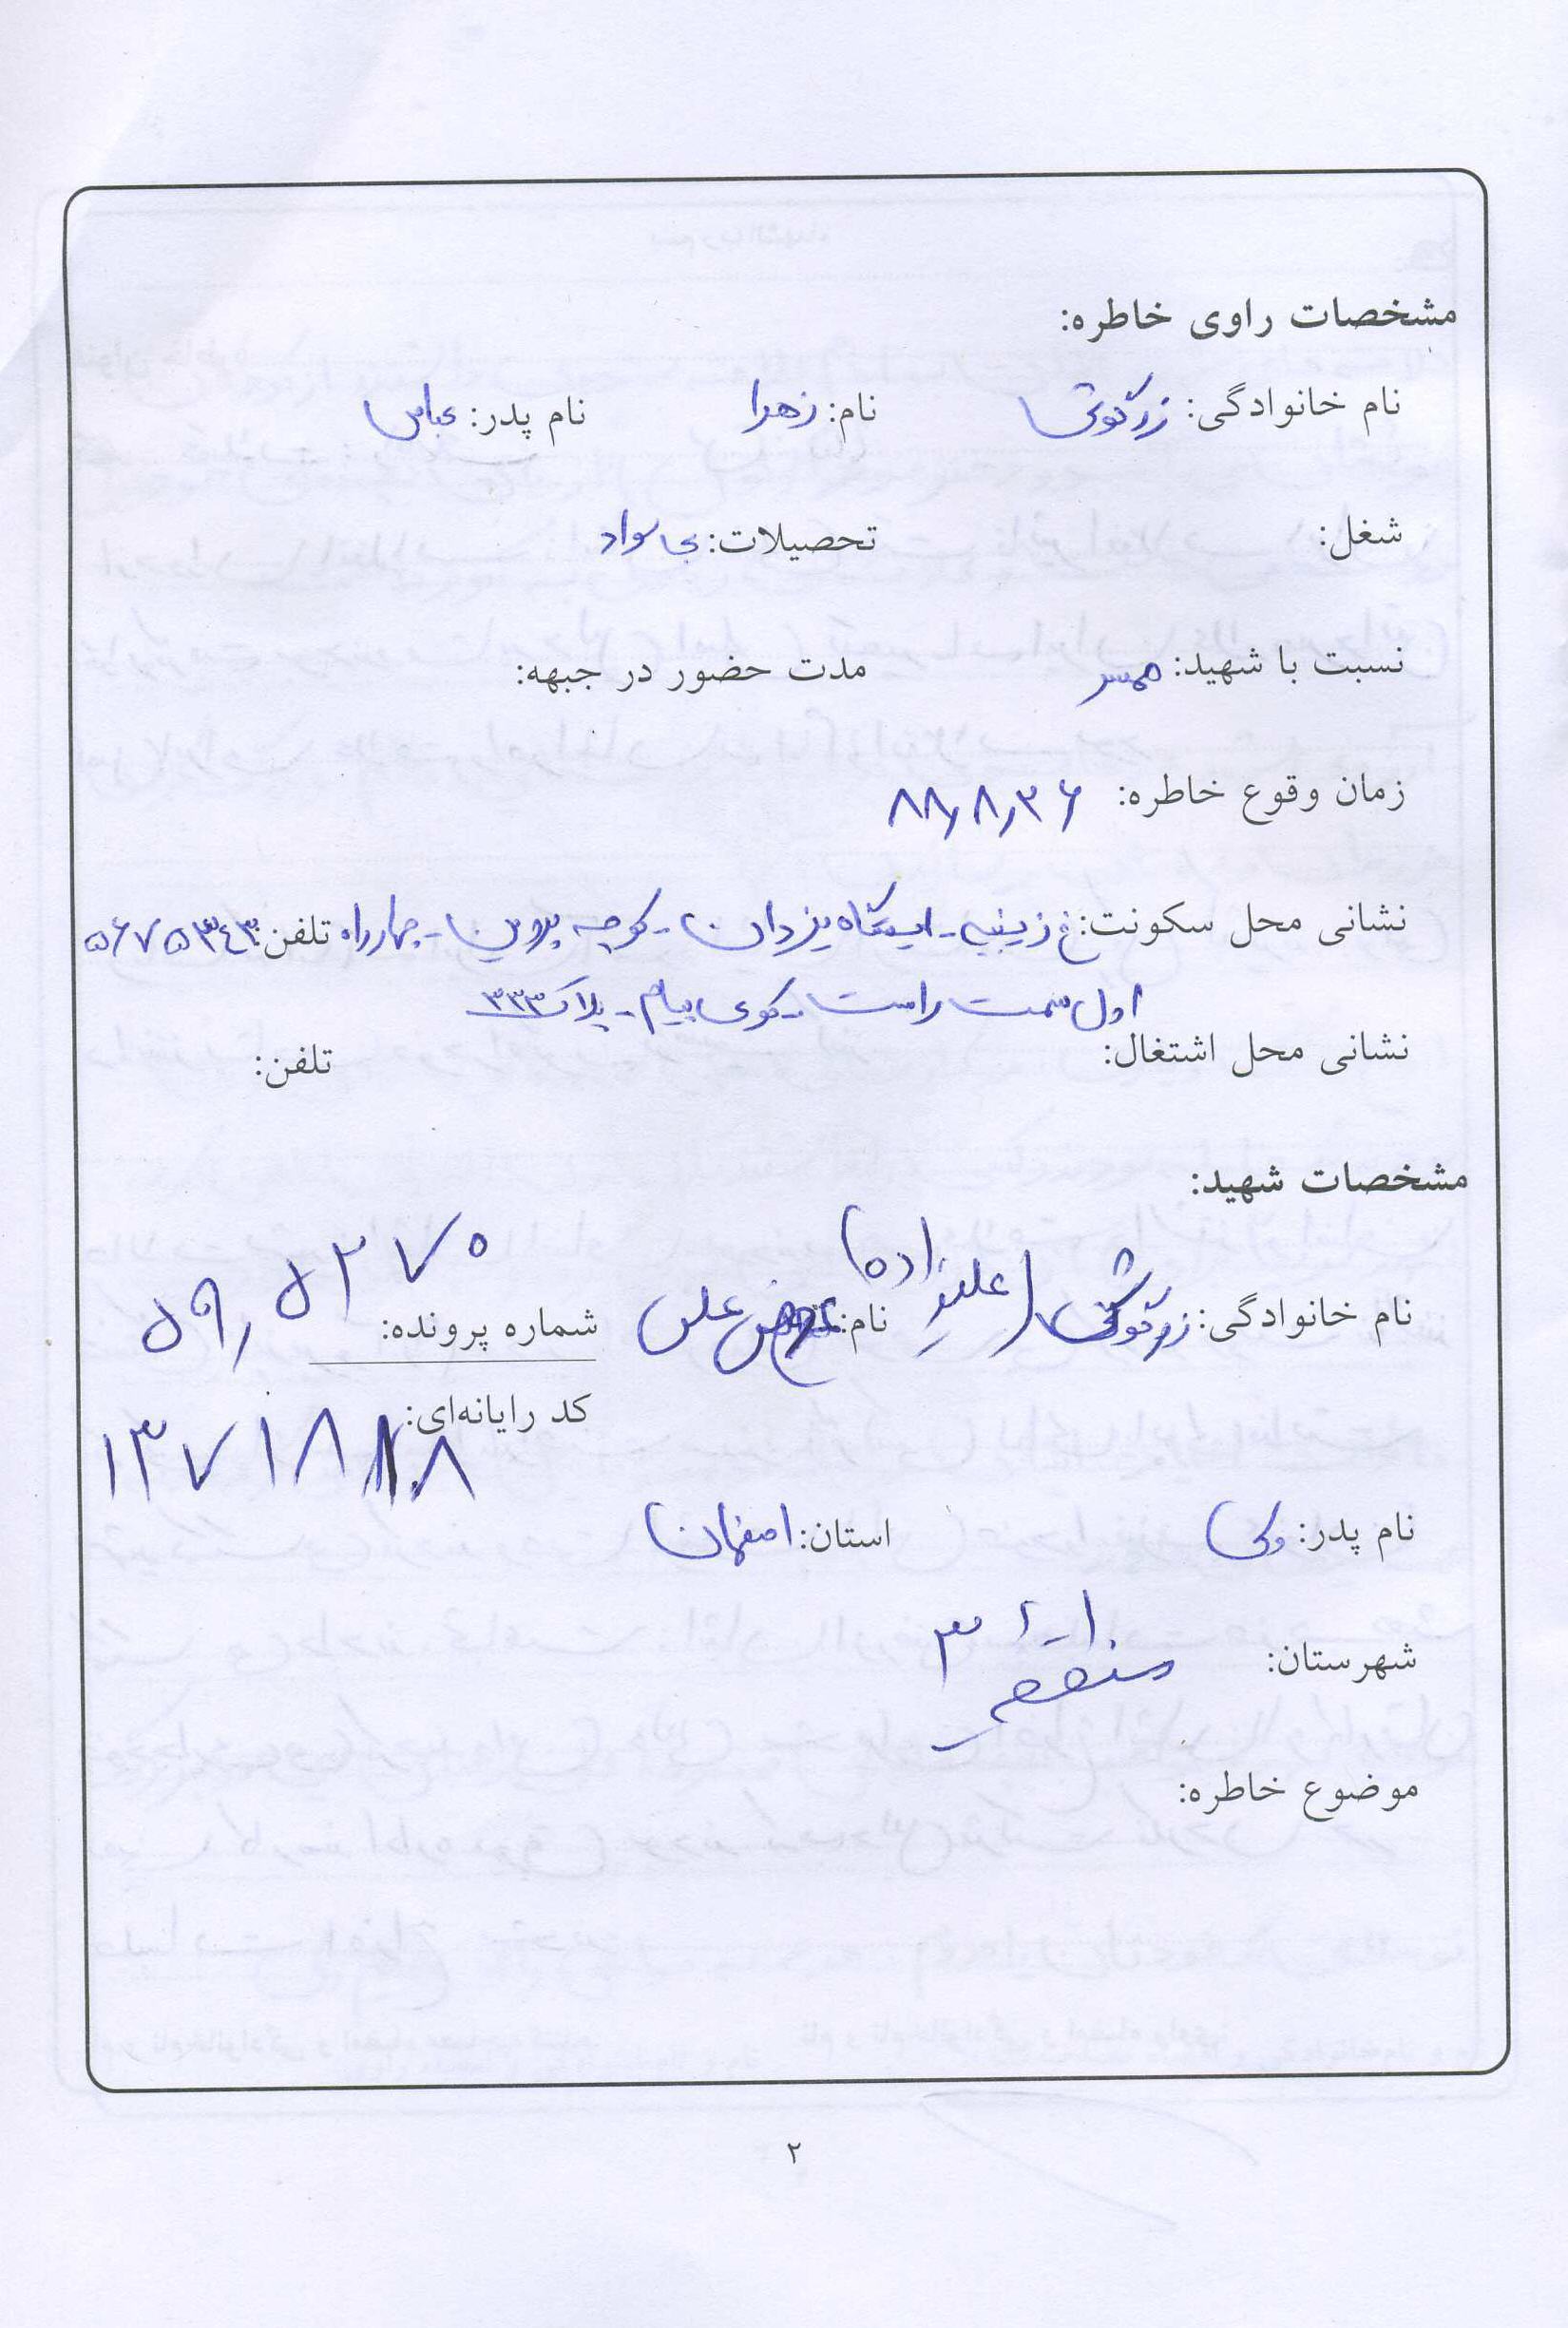 مشخصات راوی خاطره:
نام خانوادگی: زرکوش نام: زهرا نام پدر: عباس
شغل: تحصیلات: بی سواد
نسبت با شهید: همسر مدت حضور در جبهه:
زمان وقوع خاطره: ۸۸٫۸٫۲۶
نشانی محل سکونت: خ زینبیه - ایستگاه یزدان - کوچه پروین - چهارراه تلفن: ۵۶۷۵۳۴۳
اول سمت راست - کوی پیام - پلاک ۳۳۳
نشانی محل اشتغال: تلفن:
مشخصات شهید:
نام خانوادگی: زرکوش (علیزاده) نام: عوض علی شماره پرونده: ۵۹٫۵۲۷۰
کد رایانه‌ای: ۱۳۷۱۸۱۸
نام پدر: استان: اصفهان
شهرستان: منطقه ۳
موضوع خاطره:
۲